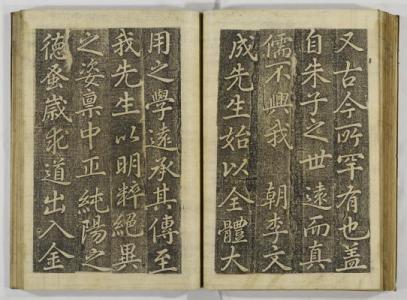 又古今所罕有也盖
自朱子之世遠而真
儒不興我 朝李文
成先生始以全體大
用之學遠承其傳至
我先生以明粹絕異
之姿稟中正純陽之
德蚤歲求道出入金